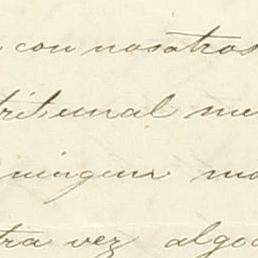 con nosotros
tribunal me
ningun mo
tra vez algo